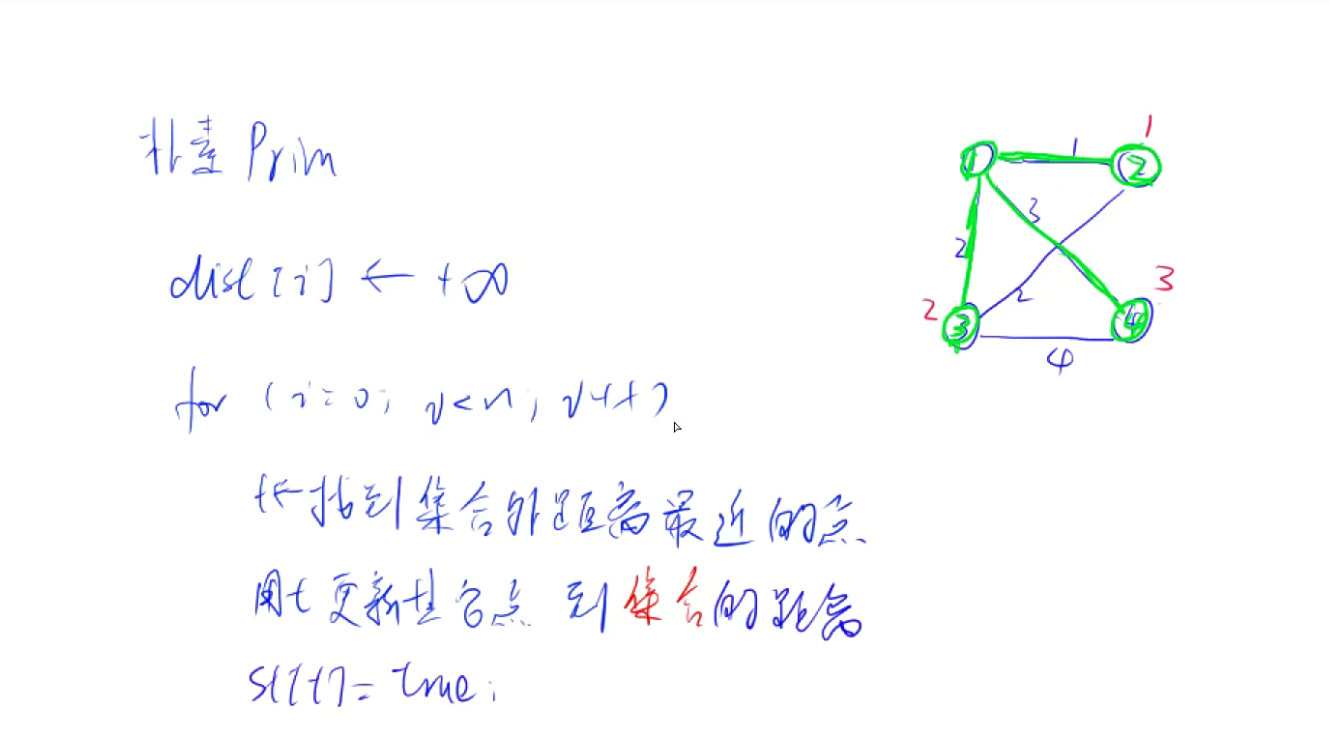 朴素 Prim
dist[i] ← +∞
for (i=0; i<n; i++)
t←找到集合外距离最近的点
用t更新其它点 到集合的距离
st[t]=true;
1
1 1 2
3
2
2 3 2 4 3
4